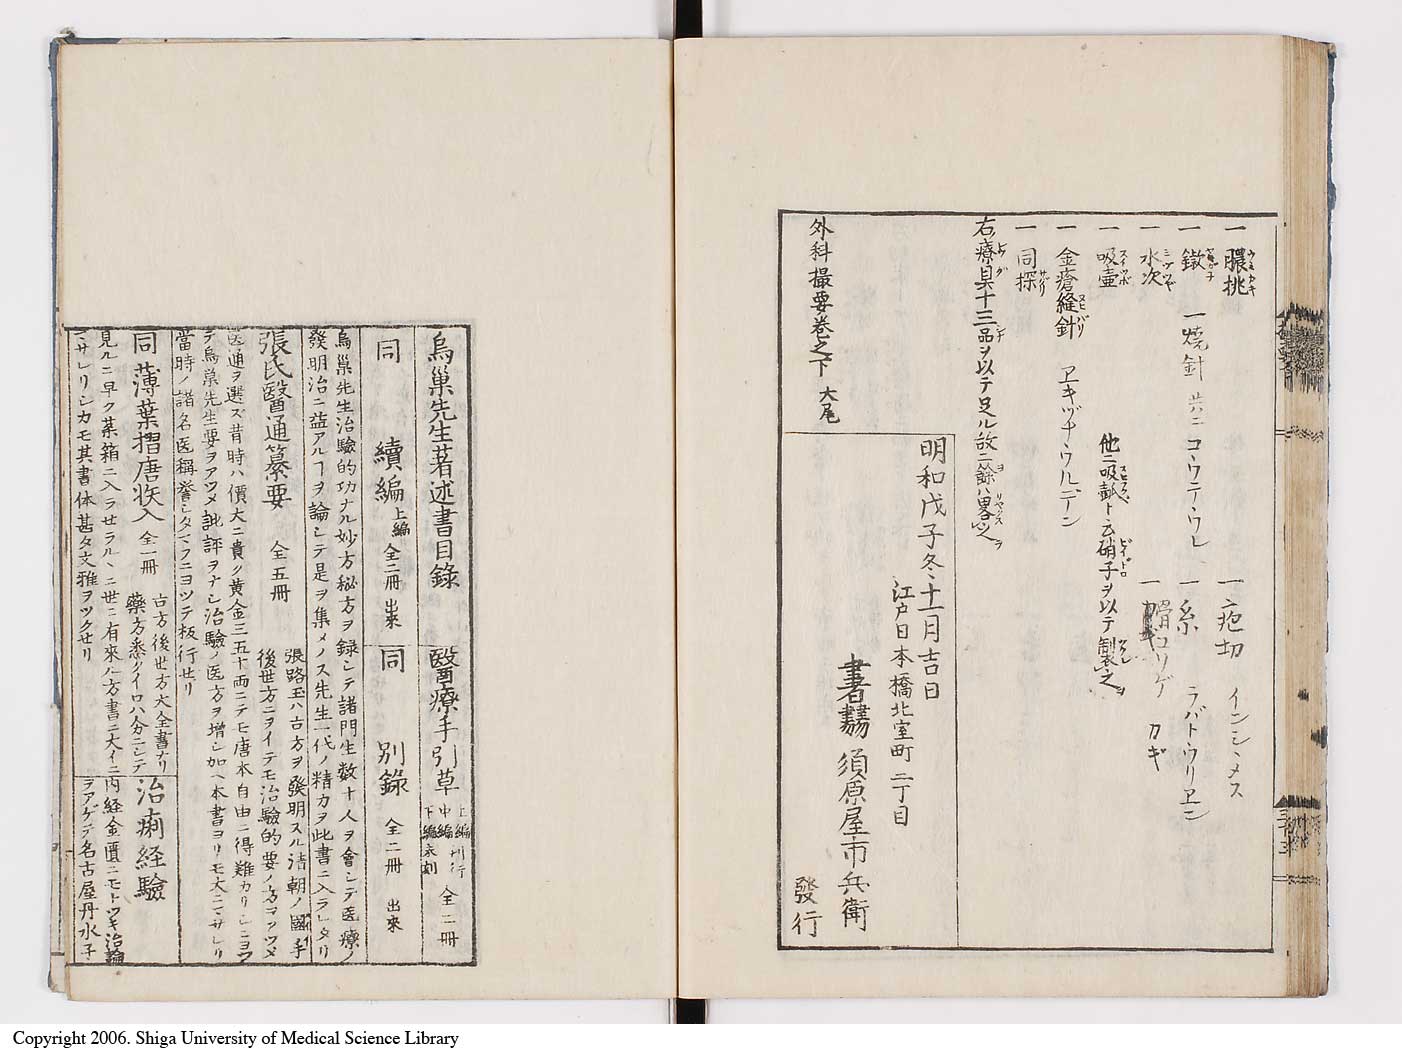 一 膿挑 一 疱切 インシ、メス
一 鐓 一 焼針 共ニコ、ウテ、ウル 一 糸 ラバト、ウリヱン
一 水次 一 カギ
一 吸壷 他ニ吸瓢ト云硝子ヲ以テ製之
一 金瘡縫針 ヱキヅナ、ウルデン
一 同探
右療具十三品ヲ以テ足ル故ニ餘ハ畧之
外科撮要巻之下 大尾
明和戊子冬十一月吉日
江戸日本橋北室町二丁目
書林 須原屋市兵衛
發行
烏巢先生著述書目錄
醫療手引草 上編 中編 刊行 下編 未刻 全二冊
同 續編 上編 全二冊 出來
同 別錄 全二冊 出來
烏巢先生治驗的功ナル妙方秘方ヲ錄シテ諸門生数十人ヲ會シテ医療ノ
發明治ニ益アルヿヲ論シテ是ヲ集メノス先生一代ノ精力ヲ此書ニ入ラレタリ
張氏醫通纂要 全五冊
張路玉ハ古方ヲ發明スル清朝ノ國手
後世方ニヲイテモ治驗的要ノ方ヲアツメ
医通ヲ選ズ昔時ハ價大ニ貴ク黄金三五十両ニテモ唐本自由ニ得難カリシニヨツ
テ烏巢先生要ヲアツメ批評ヲナシ治驗ノ医方ヲ増シ加ヘ本書ヨリモ大ニマサレリ
當時ノ諸名医稱誉シタマフニヨツテ板行セリ
同 薄葉摺唐帙入 全一冊
古方後世方大全書ナリ
藥方悉クイロハ分ニシテ
見ルニ早ク藥箱ニ入ラセラル、ニ世ニ有來ル方書ニ大イニ
マサレリシカモ其書体甚タ文雅ヲツクセリ
治痢経驗
内経金匱ニモトツキ治論
ヲアゲテ名古屋丹水子
Copyright 2006. Shiga University of Medical Science Library